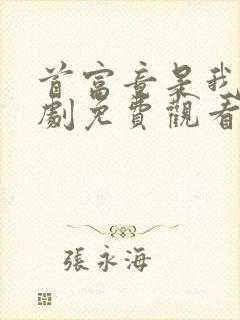 首富竟是我
劇免費觀看
張永海